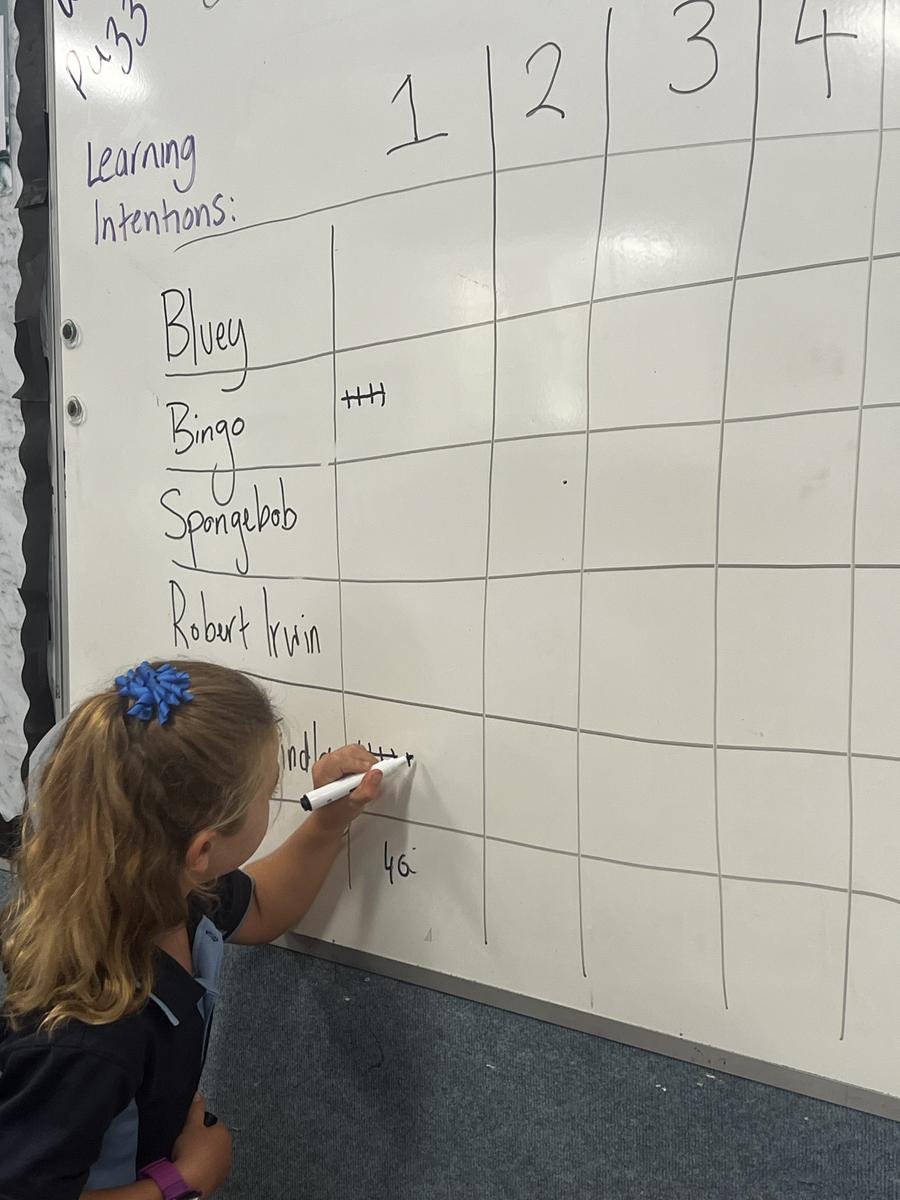 1 2 3 4
Learning
Intentions:
Bluey
Bingo
Spongebob
Robert Irwin